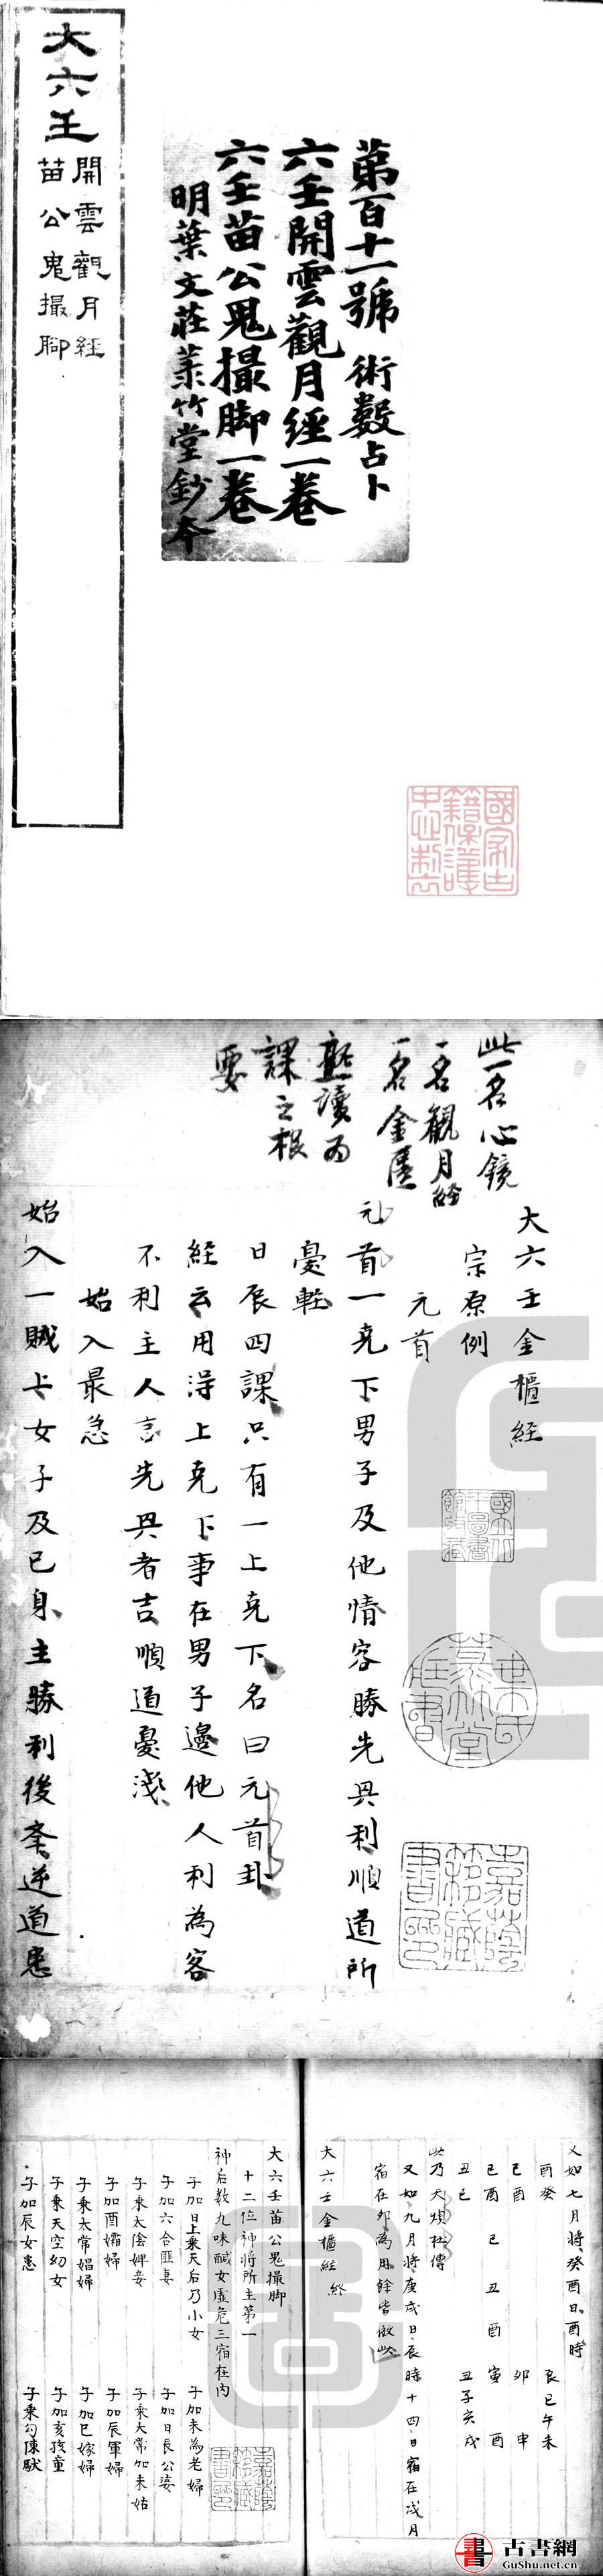 大六壬
開雲觀月經
苗公鬼撮腳
第百十一號 術數占卜
六壬開雲觀月經一卷
六壬苗公鬼撮脚一卷
明葉文莊菉竹堂鈔本
國家古
籍保護
此一名心鏡
一名觀月經
一名金匱
熟讀為
課之根
要
大六壬金櫃經
宗原例
元首
元首一克下男子及他情客勝先具利順道所
憂輕
日辰四課只有一上克下名曰元首卦
經云用淂上克下事在男子邊他人利為客
不利主人言先具者吉順道憂淺
始入最急
始入一賊上女子及己身主勝利後奎逆道患
葉氏
菉竹堂
莊書
嘉蔭
簃藏
書印
又如七月將癸酉日酉時
酉癸 辰巳午未
己酉 卯 申
己酉 己 丑 酉 寅 酉
丑己 丑子亥戌
此乃天煩杜傳
又如九月將庚戌日辰時十四日宿在戌月
宿在夘為用餘皆倣此
大六壬金櫃經 終
大六壬苗公鬼撮脚
十二位神將所主第一
神后数九味鹹女虛危三宿在内
子加日上乘天后乃小女 子加未為老婦
子加六合匪妻 子加日長公妾
子乘太陰婢妾 子乘大常加未姑
子加酉孀婦 子加辰軍婦
子乘太常娼婦 子加巳嫁婦
子乘天空幼女 子加亥孩童
子加辰女患 子乘勾陳獃
嘉蔭
簃藏
書印
書 古書網
GuShu.net.cn